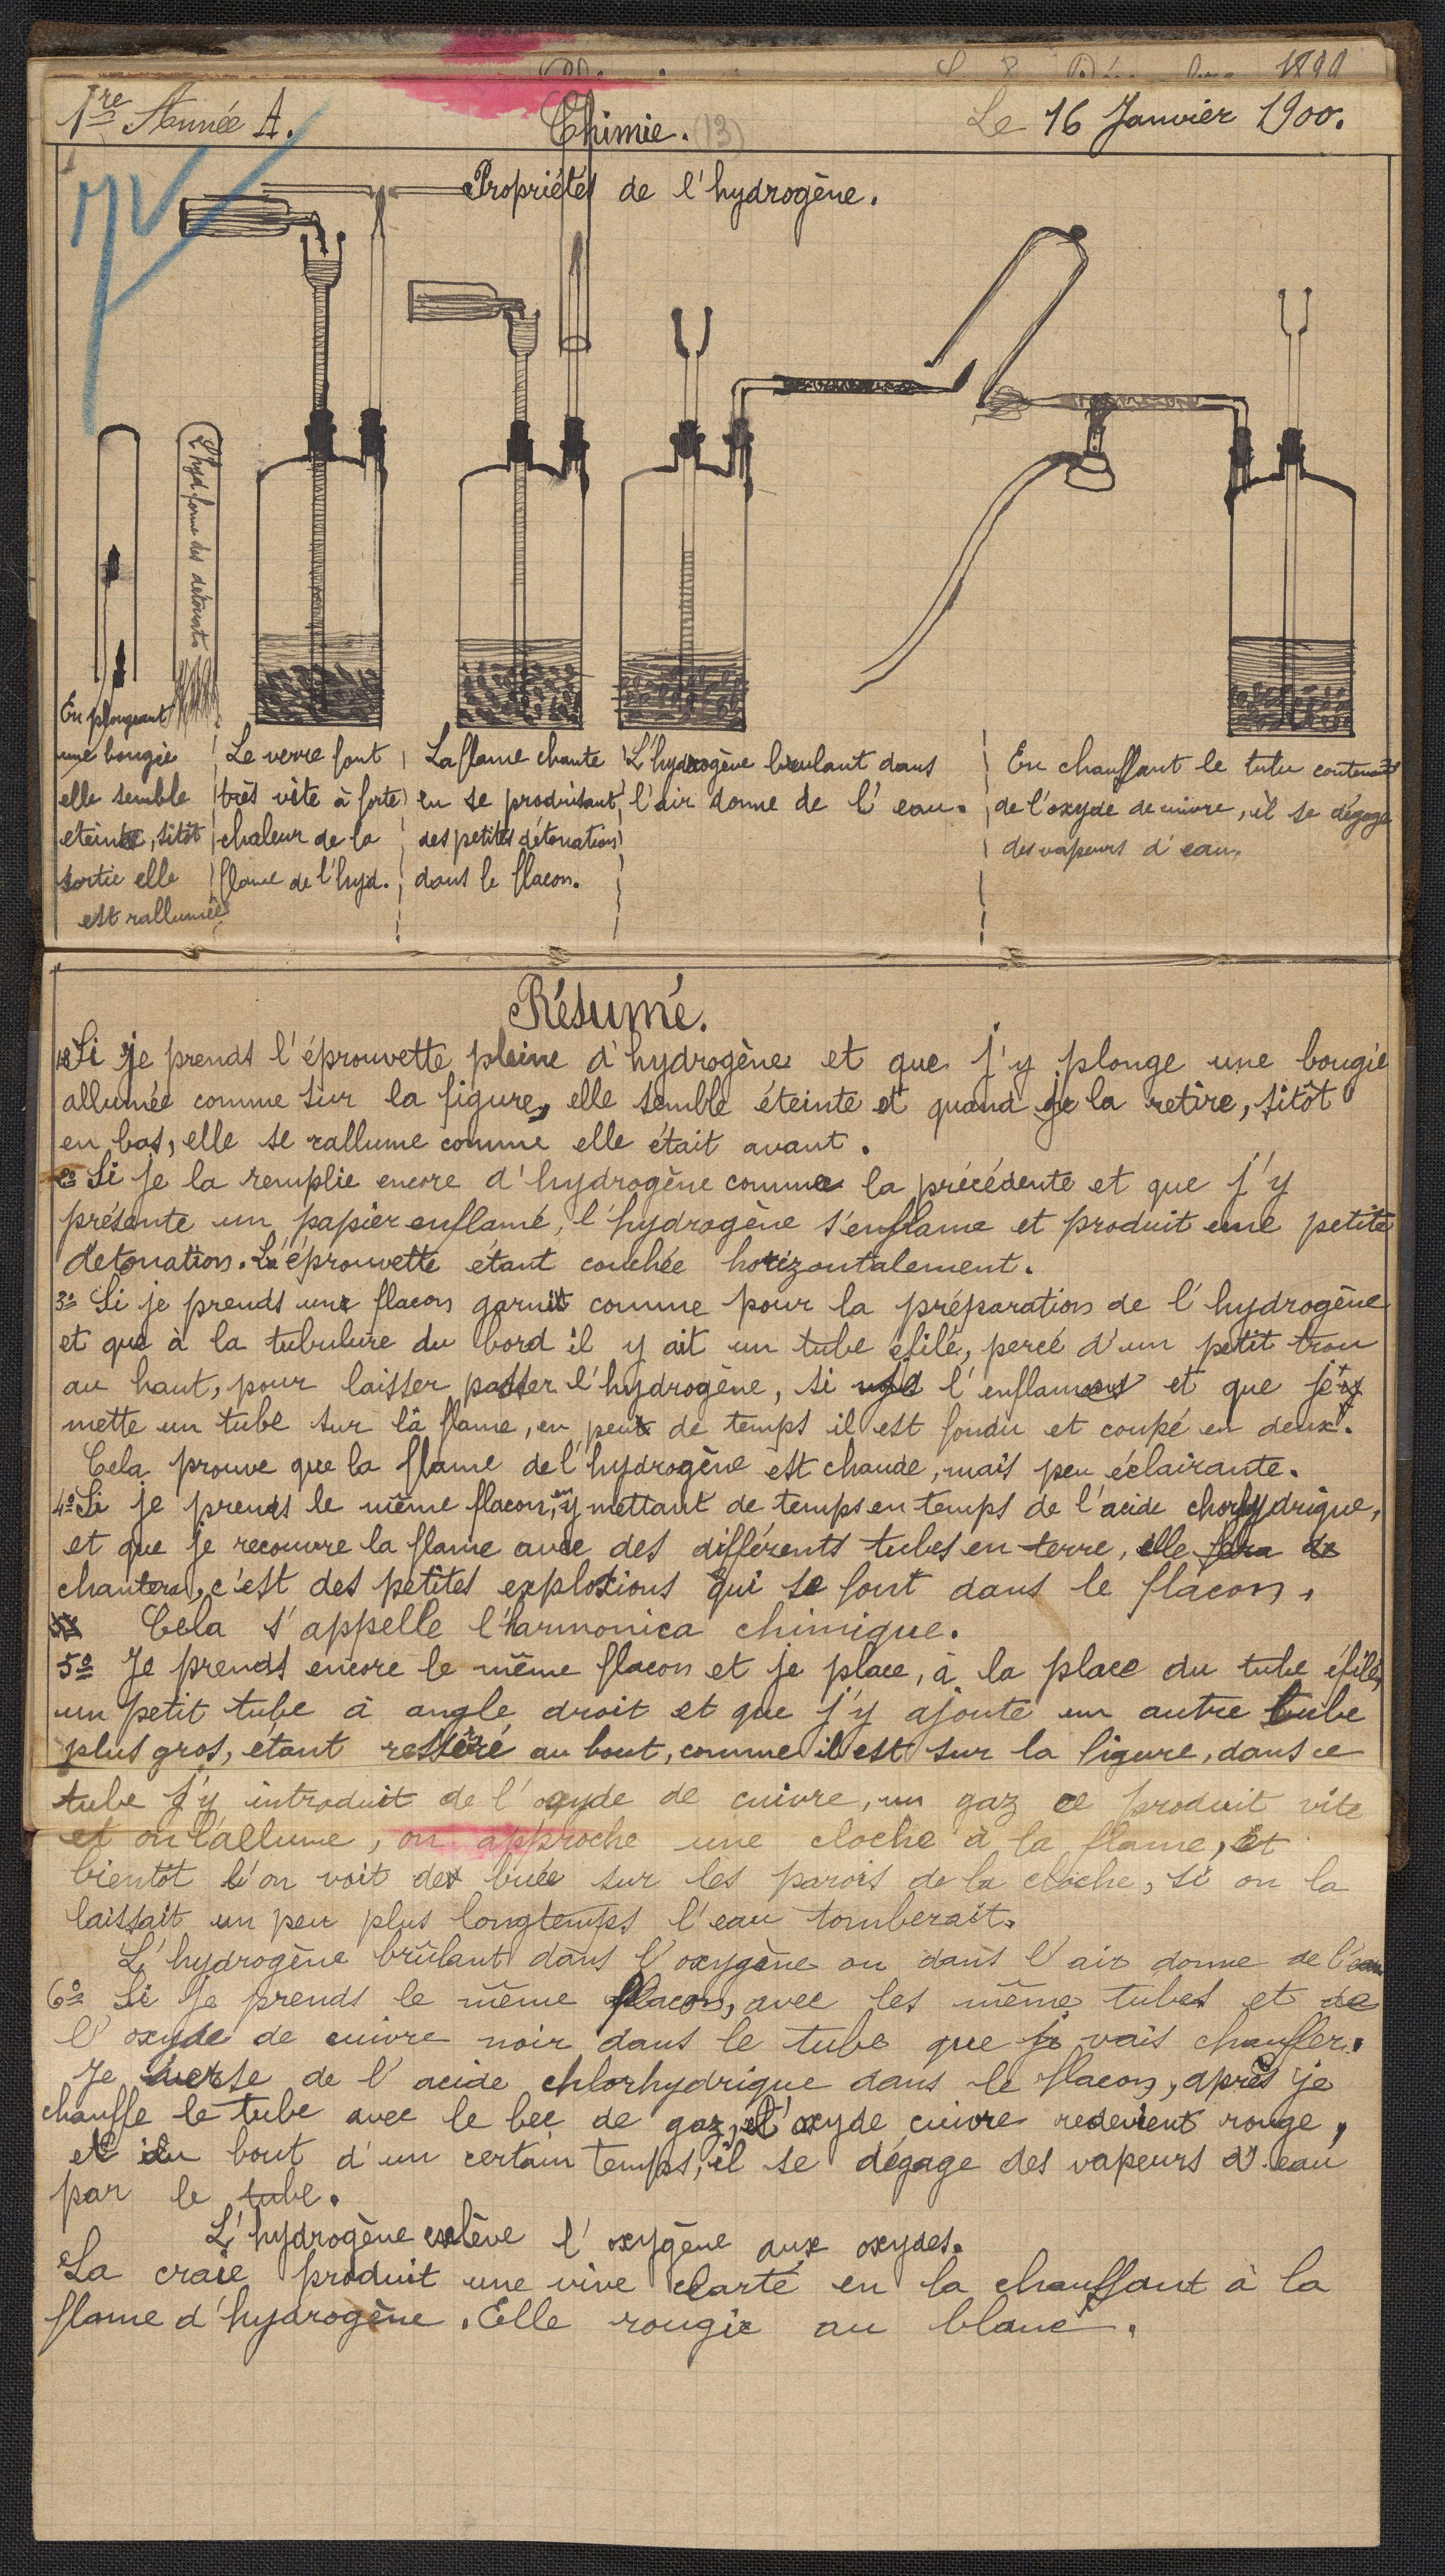 1re Année A.
Chimie. (13)
Le 16 Janvier 1900.
Propriétés de l'hydrogène.
L'hyd. forme des détonat.
En plongeant
une bougie
elle semble
eteinte, sitôt
sortie elle
est rallumée
Le verre font
très vite à forte
chaleur de la
flame de l'hyd.
La flame chante
en se produisant
des petites détonations
dans le flacon.
L'hydrogène brulant dans
l'air donne de l'eau.
En chauffant le tube contenant
de l'oxyde de cuivre, il se dégage
des vapeurs d'eau.
Résumé.
1º Si je prends l'éprouvette pleine d'hydrogène et que j'y plonge une bougie
allumée comme sur la figure, elle semble éteinte et quand je la retire, sitôt
en bas, elle se rallume comme elle était avant.
2º Si je la remplie encore d'hydrogène comme la précédente et que j'y
présente un papier enflamé, l'hydrogène s'enflame et produit une petite
détonation. L'éprouvette étant couchée horizontalement.
3º Si je prends un flacon garnit comme pour la préparation de l'hydrogène
et que à la tubulure du bord il y ait un tube éfilé, percé d'un petit trou
au haut, pour laisser passer l'hydrogène, si l'enflamons et que j'y
mette un tube sur la flame, en peu de temps il est fondu et coupé en deux.
Cela prouve que la flame de l'hydrogène est chaude, mais peu éclairante.
4º Si je prends le même flacon, en y mettant de temps en temps de l'acide chorhydrique,
et que je recouvre la flame avec des différents tubes en terre, elle
chantera, c'est des petites explosions qui se font dans le flacon.
Cela s'appelle l'harmonica chimique.
5º Je prends encore le même flacon et je place, à la place du tube éfilé,
un petit tube à angle droit et que j'y ajoute un autre tube
plus gros, étant au bout, comme il est sur la figure, dans ce
tube j'y introduit de l'oxyde de cuivre, un gaz ce produit vite
et on l'allume, on approche une cloche à la flame, et
bientôt l'on voit des buée sur les parois de la cloche, si on la
laissait un peu plus longtemps l'eau tomberait.
L'hydrogène brûlant dans l'oxygène ou dans l'air donne de l'eau
6º Si je prends le même flacon, avec les même tubes et de
l'oxyde de cuivre noir dans le tube que je vais chauffer.
Je verse de l'acide chlorhydrique dans le flacon, après je
chauffe le tube avec le bec de gaz, l'oxyde cuivre redevient rouge,
et au bout d'un certain temps, il se dégage des vapeurs d'eau
par le tube.
L'hydrogène enlève l'oxygène aux oxydes.
La craie produit une vive clarté en la chauffant à la
flame d'hydrogène. Elle rougie au blanc.